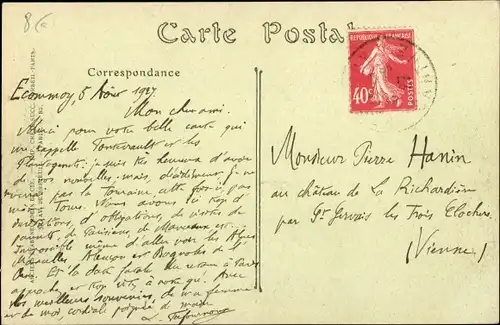 Carte Postale
Correspondance
RÉPUBLIQUE FRANÇAISE
40c
POSTES
Ecommoy, 5 Août 1927
Mon cher ami.
Merci pour votre belle carte qui
me rappelle Fontevrault et les
Plantagenets : je suis très heureux d'avoir
de vos nouvelles, mais, décidément, je ne
pas la Touraine cette fois, pas
même Tours. Nous avons ici trop de
d'obligations, de visites de
parents, de Parisiens, de
impossible même d'aller voir les Alpes
Mancelles, Alençon et Bagnoles de l'
Orne. Et la date fatale du retour à Paris
approche et trop vite, à notre gré. Avec
nos meilleurs souvenirs, de ma femme
et de moi, cordiale poignée de main
Monsieur Pierre Hanin
au château de La Richardière
par St Gervais les Trois Clochers
(Vienne)